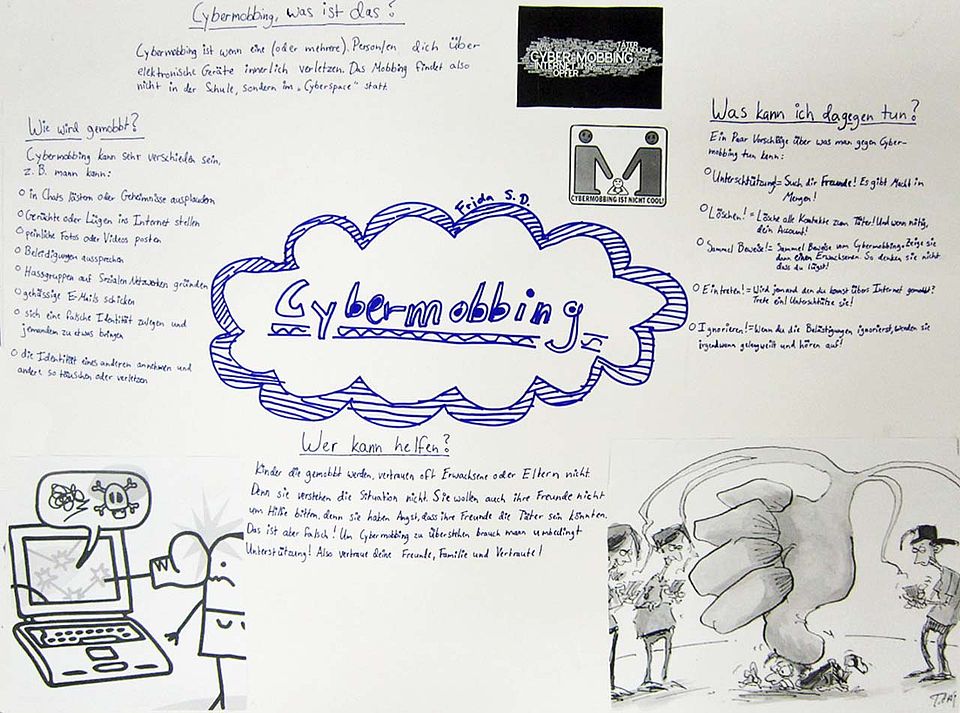 Cybermobbing, was ist das?
Cybermobbing ist wenn eine (oder mehrere) Person/en dich über
elektronische Geräte innerlich verletzen. Das Mobbing findet also
nicht in der Schule, sondern im „Cyberspace" statt.
TÄTER
CYBER-MOBBING
INTERNET
OPFER
CYBERMOBBING IST NICHT COOL!
Wie wird gemobbt?
Cybermobbing kann sehr verschieden sein,
z.B. mann kann:
o in Chats lästern oder Geheimnisse ausplaudern
o Gerüchte oder Lügen ins Internet stellen
o peinliche Fotos oder Videos posten
o Beleidigungen aussprechen
o Hassgruppen auf Sozialen Netzwerken gründen
o gehässige E-Mails schicken
o sich eine falsche Identität zulegen und
jemanden zu etwas bringen
o die Identität eines anderen annehmen und
andere so täuschen oder verletzen
Frida S. D.
Cybermobbing
Was kann ich dagegen tun?
Ein Paar Vorschläge über was man gegen Cyber-
mobbing tun kann:
o Unterschtützung = Such dir Freunde! Es gibt Macht in
Mengen!
o Löschen! = Lösche alle Kontakte zum Täter! Und wenn nötig,
dein Account!
o Sammel Beweise! = Sammel Beweise vom Cybermobbing. Zeige sie
dann einen Erwachsenen. So denken sie nicht
dass du lügst!
o Eintreten! = Wird jemand den du kennst übers Internet gemobbt?
Trete ein! Unterschtütze sie!
o Ignorieren! = Wenn du die Belästigungen ignorierst, werden sie
irgendwann gelangweilt und hören auf!
Wer kann helfen?
Kinder die gemobbt werden, vertrauen oft Erwachsene oder Eltern nicht.
Denn sie verstehen die Situation nicht. Sie wollen auch ihre Freunde nicht
um Hilfe bitten, denn sie haben Angst, dass ihre Freunde die Täter sein könnten.
Das ist aber falsch! Um Cybermobbing zu überstehen brauch mann unbedingt
Unterstützung! Also vertraue deine Freunde, Familie und Vertraute!